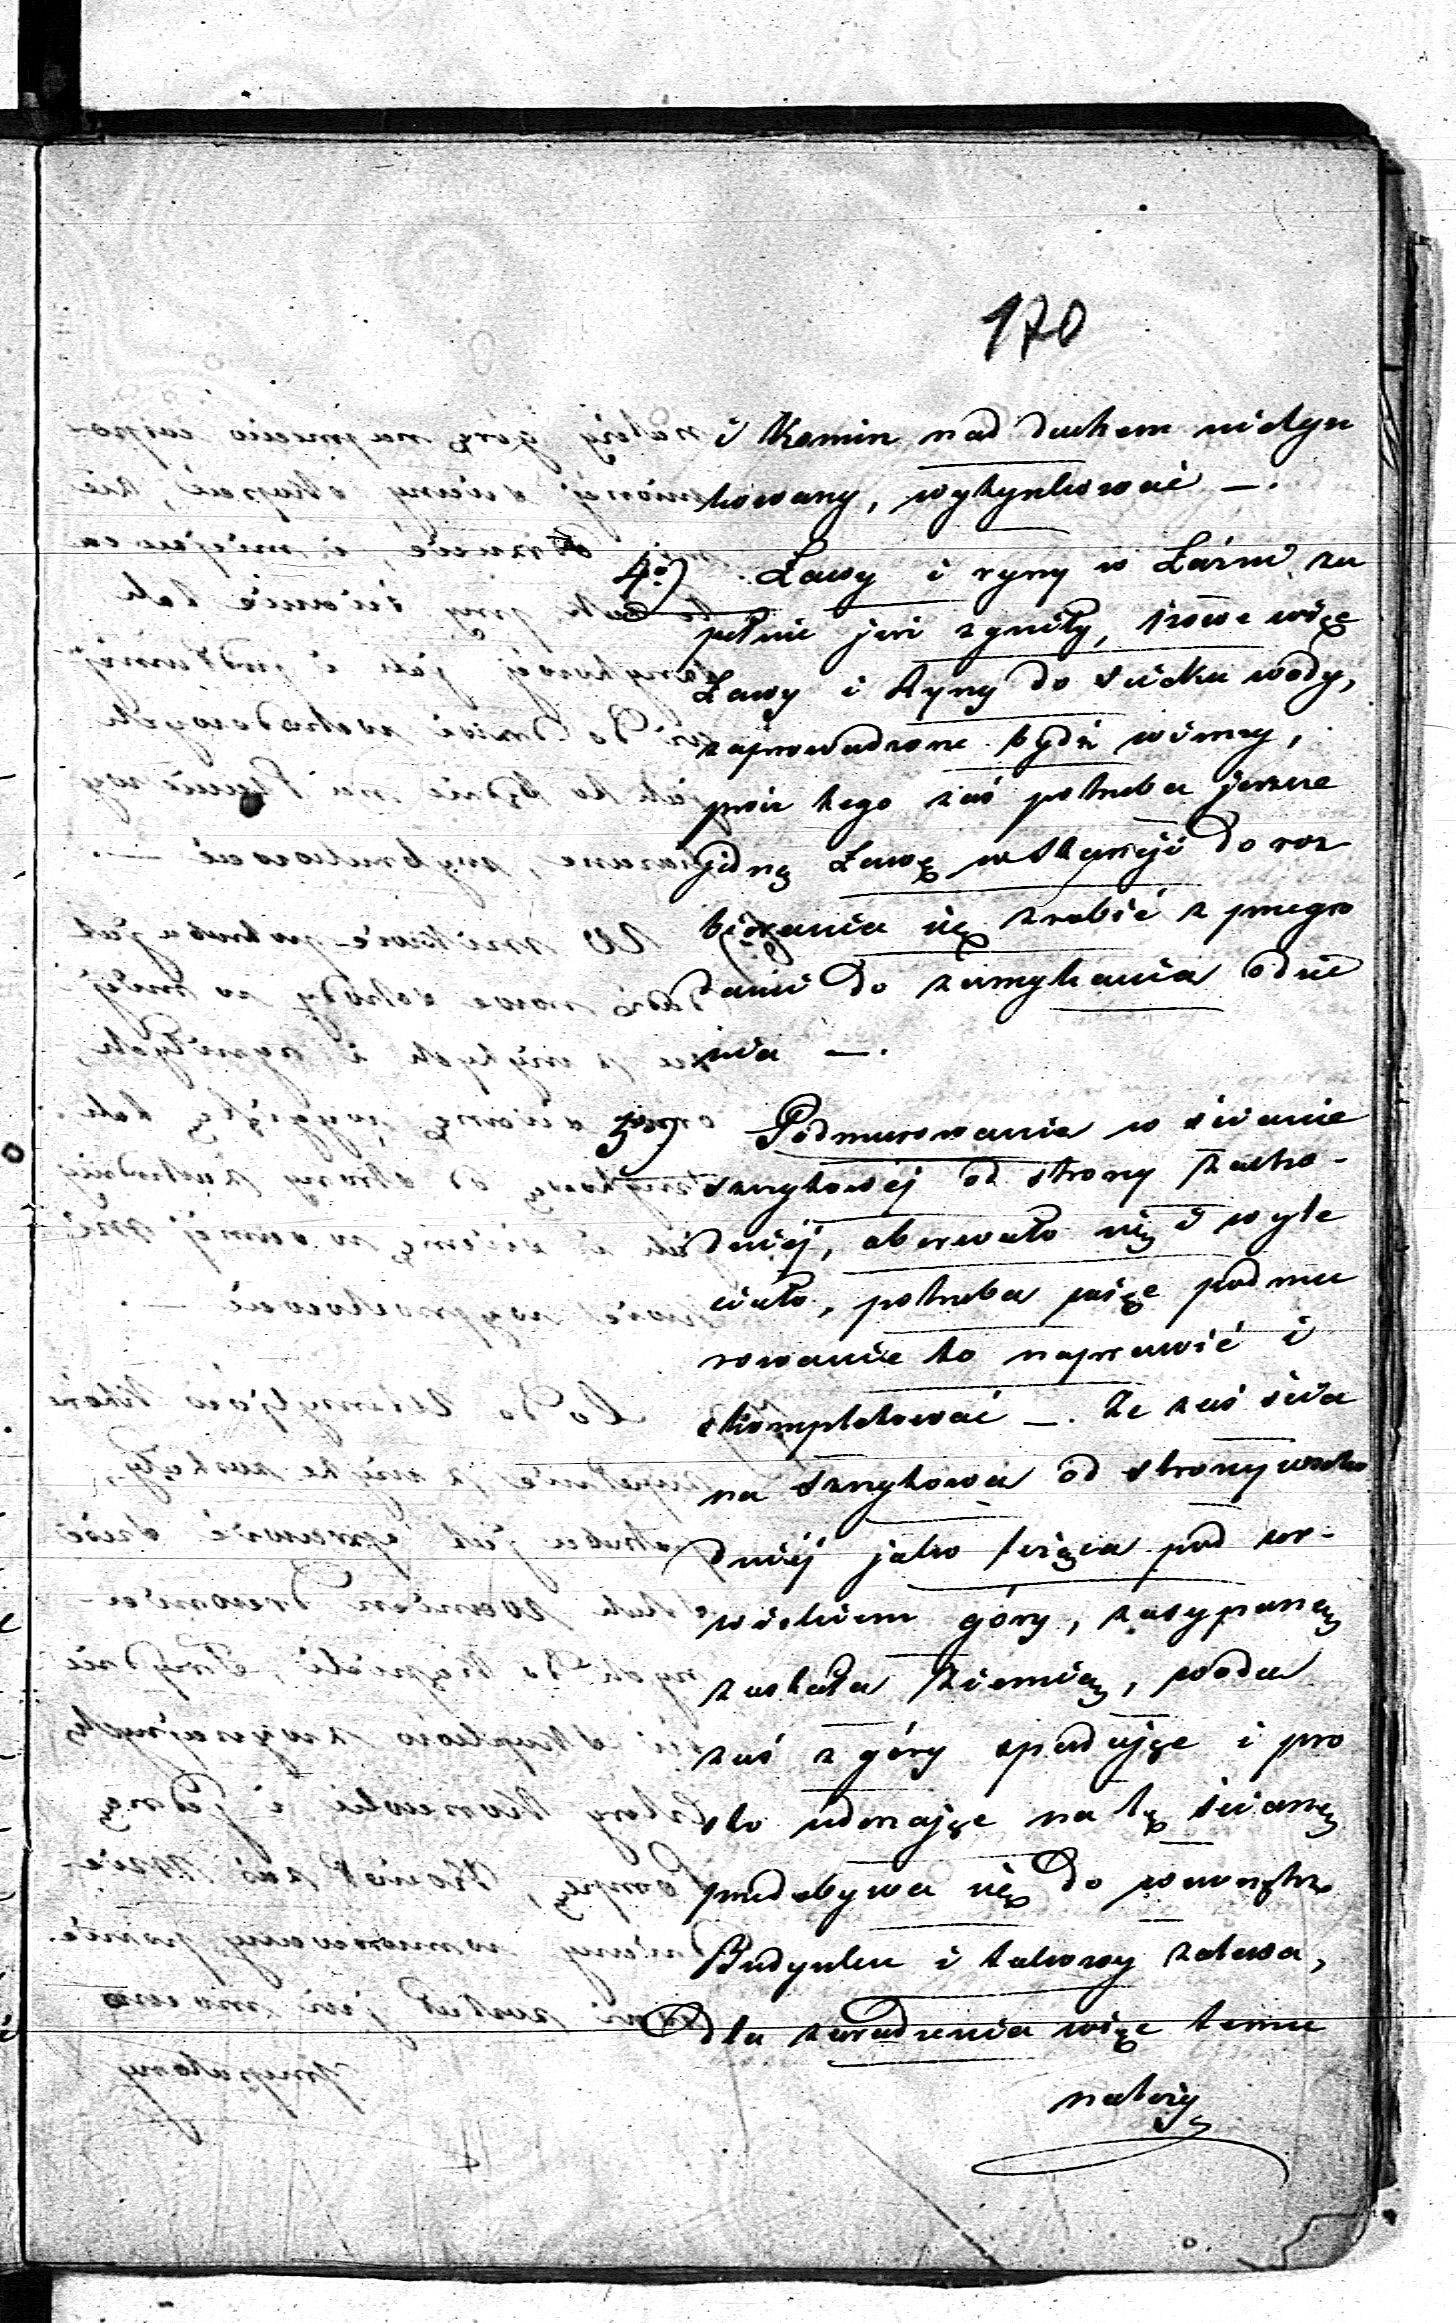 170
i Komin nad dachem nietyn
kowany, wytynkować —.
4º) Ławy i ryny w Łaźni zu
pełnie już zgniły, nowe więc
Ławy i Ryny do scieku wody,
zaprowadzone bydź winny,
prócz tego zaś potrzeba jeszcze
jedną Ławę w Stancji do roz
bierania się zrobić z przegro
dami do zamykania odzie
nia —.
5º) Podmurowania w ścianie
szczytowéj od strony zacho-
dniéj, oberwało się i wyle
ciało, potrzeba więc podmu
rowanie to naprawić i
skompletować —. Że zaś ścia
na szczytowa od strony wscho
dniéj jako będąca pod wz-
wściskiem góry, zasypaną
została ziemią, woda
zaś z góry spadając i pro
sto uderzając na tę ścianę
przedobywa się do wewnątrz
Budynku i takowy zalewa,
dla zaradzenia więc temu
należy